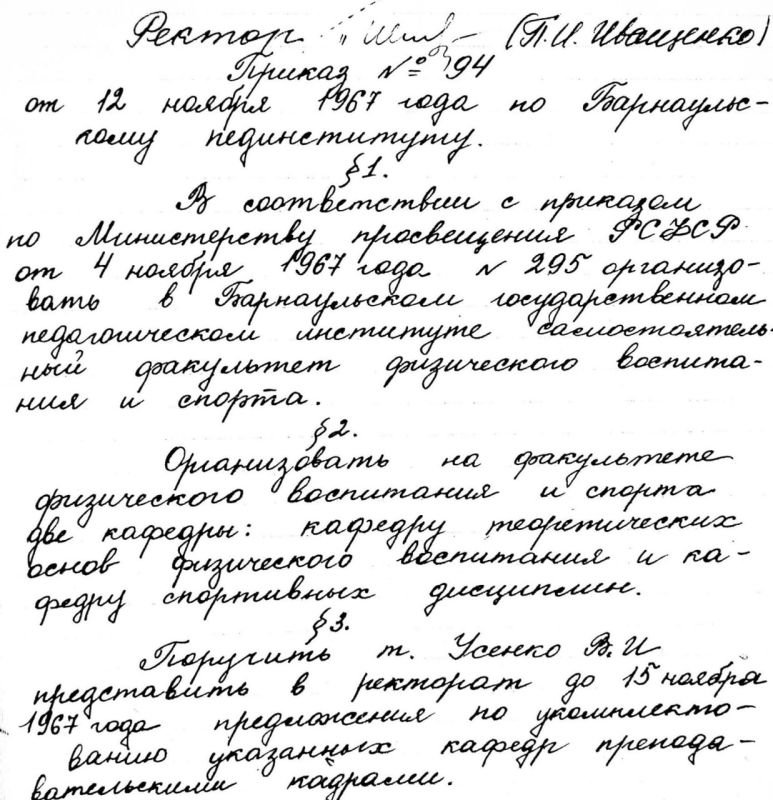 Ректор (П.И. Иващенко)
Приказ № 94
от 12 ноября 1967 года по Барнауль-
скому пединституту.
§1.
В соответствии с приказом
по Министерству просвещения РСФСР
от 4 ноября 1967 года № 295 организо-
вать в Барнаульском государственном
педагогическом институте самостоятель-
ный факультет физического воспита-
ния и спорта.
§2.
Организовать на факультете
физического воспитания и спорта
две кафедры: кафедру теоретических
основ физического воспитания и ка-
федру спортивных дисциплин.
§3.
Поручить т. Усенко В.И
представить в ректорат до 15 ноября
1967 года предложения по укомплекто-
ванию указанных кафедр препода-
вательскими кадрами.